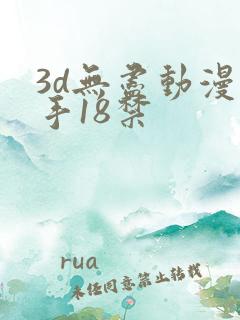 3d無盡動漫
手18禁
rua
未经同意禁止转载